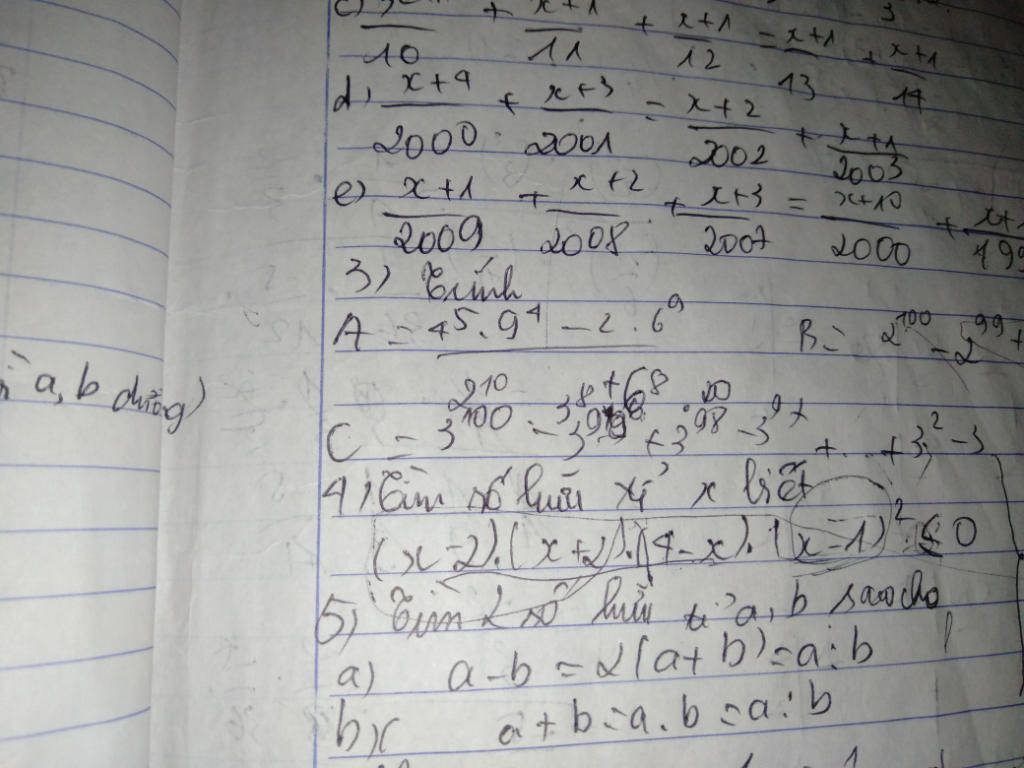 c) + x+1/11 + x+1/12 = x+1/13 + x+1/14
d) x+4/2000 + x+3/2001 = x+2/2002 + x+1/2003
e) x+1/2009 + x+2/2008 + x+3/2007 = x+10/2000 +
3) Tính
A = 4^5.9^4 - 2.6^9 / 2^10.3^8+6^8.20 B = 2^100 - 2^99 +
a, b dương)
C = 3^100 - 3^99 + 3^98 - 3^97 + ... + 3^2 - 3
4) Tìm số hữu tỉ x biết
(x-2).(x+2).(4-x).(x-1)^2 ≤ 0
5) Tìm 2 số hữu tỉ a, b sao cho
a) a-b = 2(a+b) = a:b
b) a+b = a.b = a:b